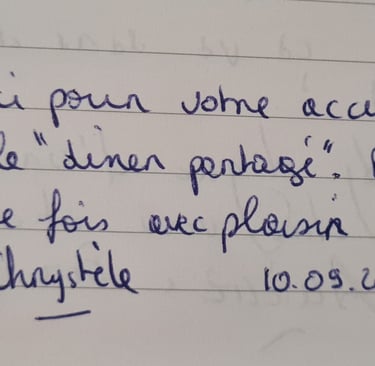 i pour votre accu
le "dîner partagé".
e fois avec plaisir
Chrystèle 10.09.2